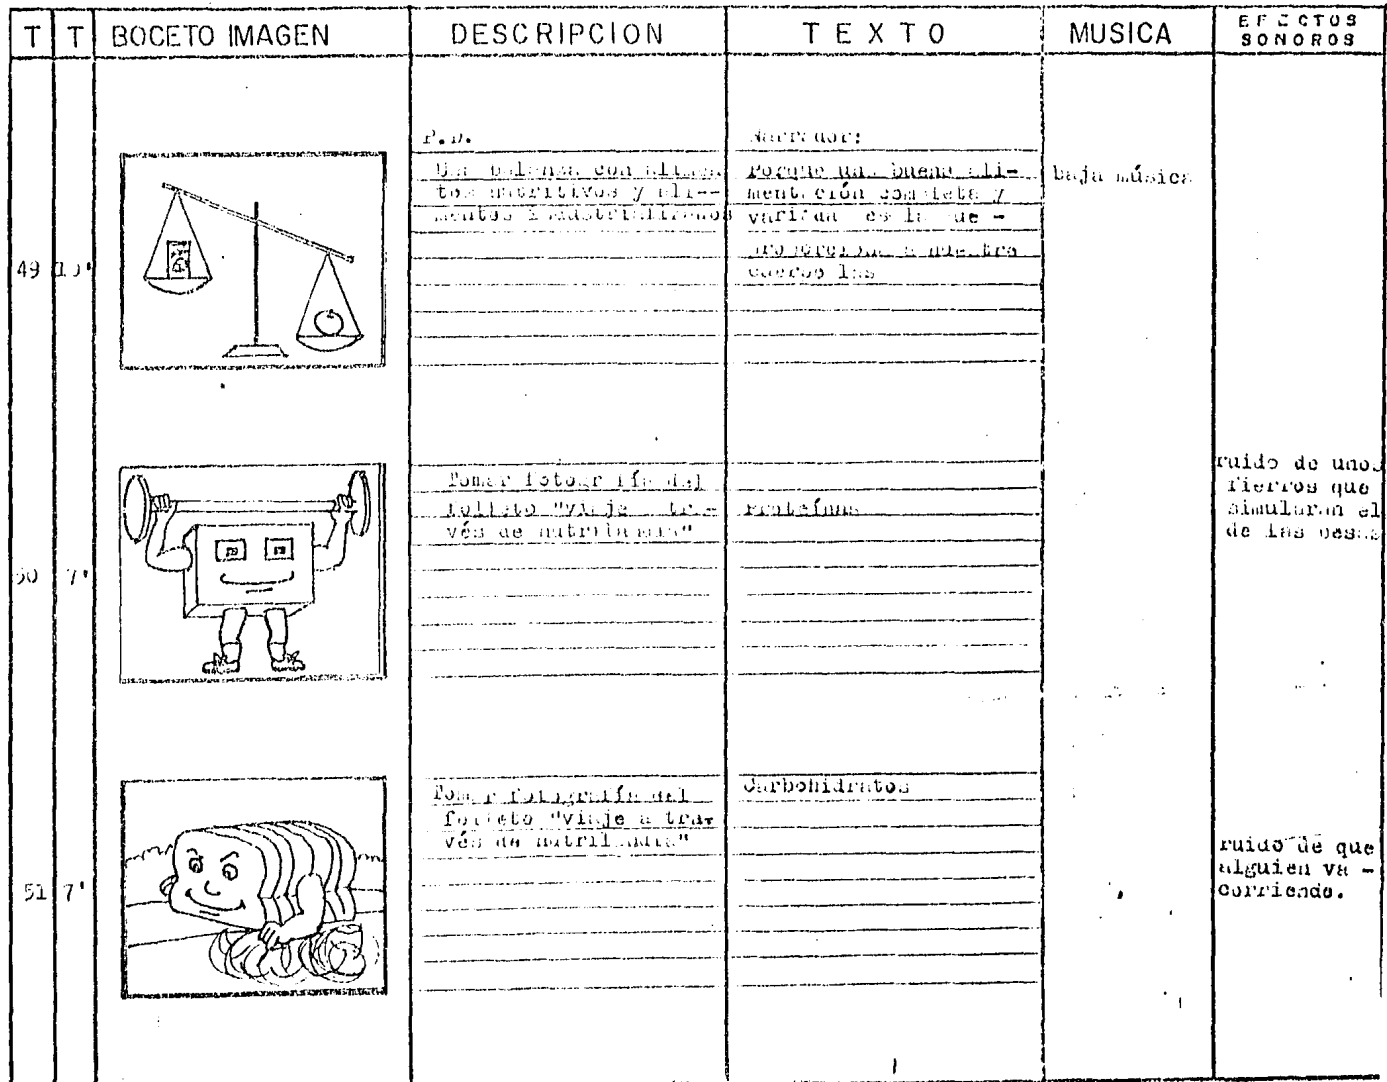 T T BOCETO IMAGEN DESCRIPCION TEXTO MUSICA EFECTOS SONOROS
P.D.
Una balanza con alimen
tos nutritivos y ali--
mentos industrializados
Narrador:
Porque una buena ali-
mentación completa y
variada es la que -
proporciona a nuestro
cuerpo las
baja música
49
50 7'
Tomar fotografía del
folleto "viaje a tra-
vés de nutrilandia"
Proteínas
ruido de unos
fierros que
simularan el
de las pesas
51 7'
Tomar fotografía del
folleto "viaje a tra-
vés de nutrilandia"
Carbohidratos
ruido de que
alguien va -
corriendo.